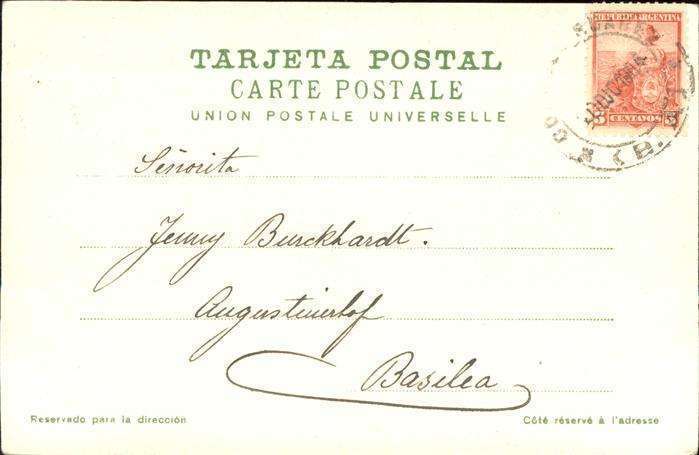 TARJETA POSTAL
CARTE POSTALE
UNION POSTALE UNIVERSELLE
REPUBLICA ARGENTINA
5 CENTAVOS 5
Señorita
Jenny Burckhardt.
Augustinerhof
Basilea
Reservado para la dirección
Côté réservé à l'adresse